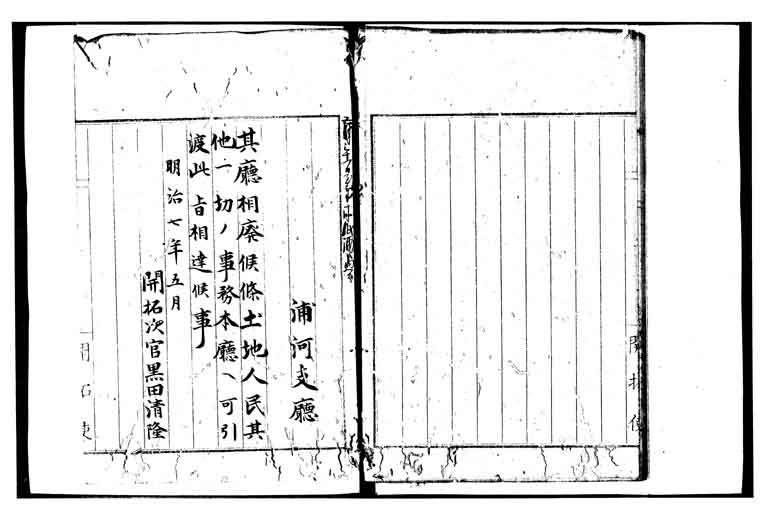 浦河支廳
其廳相廢候條土地人民其
他一切ノ事務本廳ヘ可引
渡此旨相達候事
明治七年五月
開拓次官黒田清隆